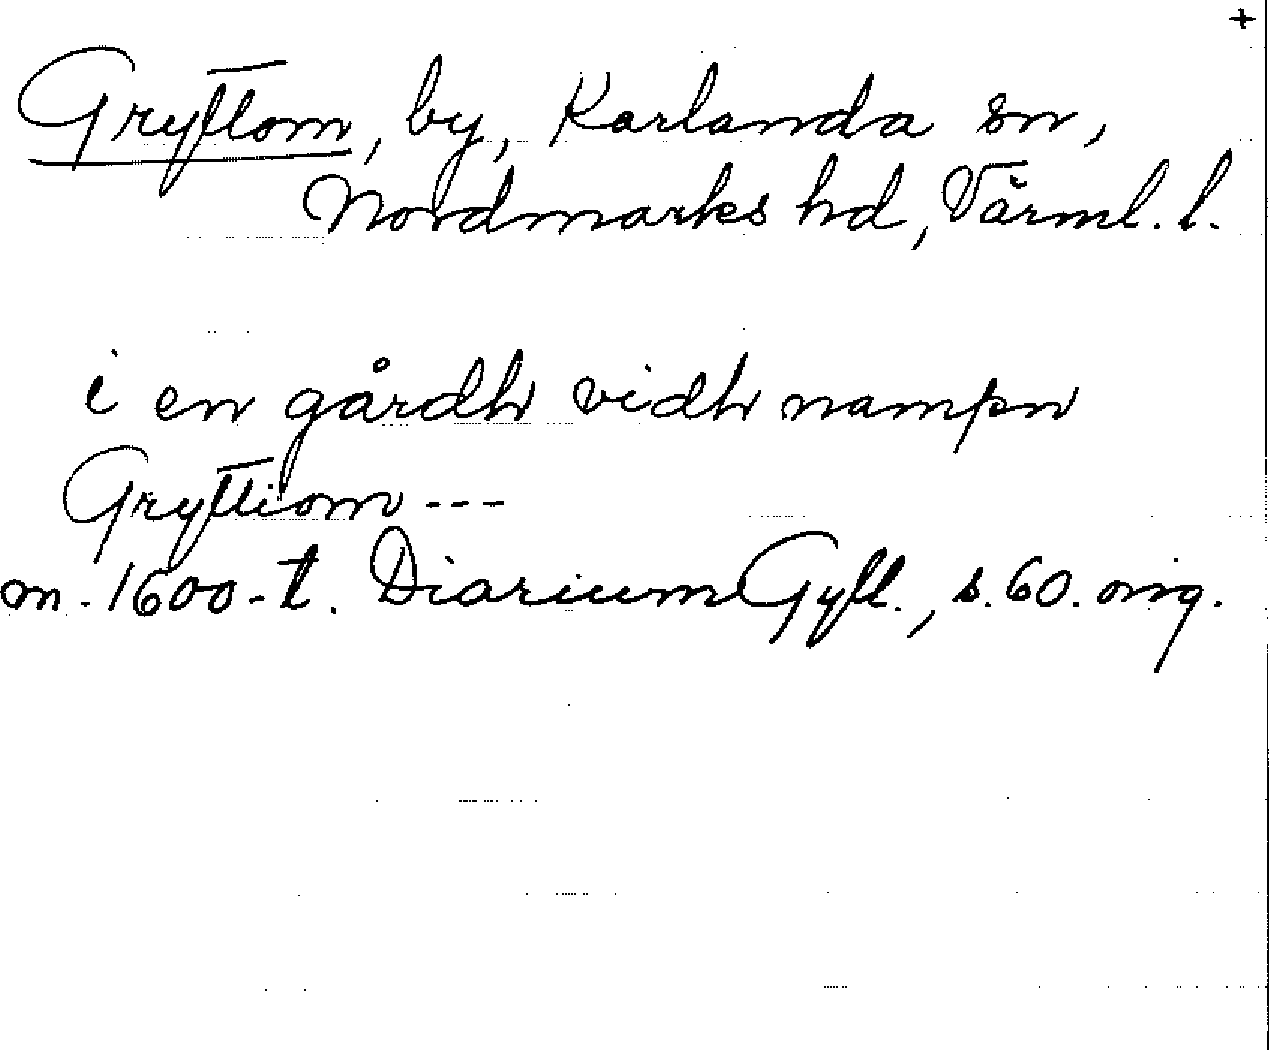 +
Gryttom, by, Karlanda sn,
Nordmarks hd, Värml. l.
i en gårdh vidh nampn
Gryttiom ---
m. 1600-t. Diarium Gyll., s. 60. orig.